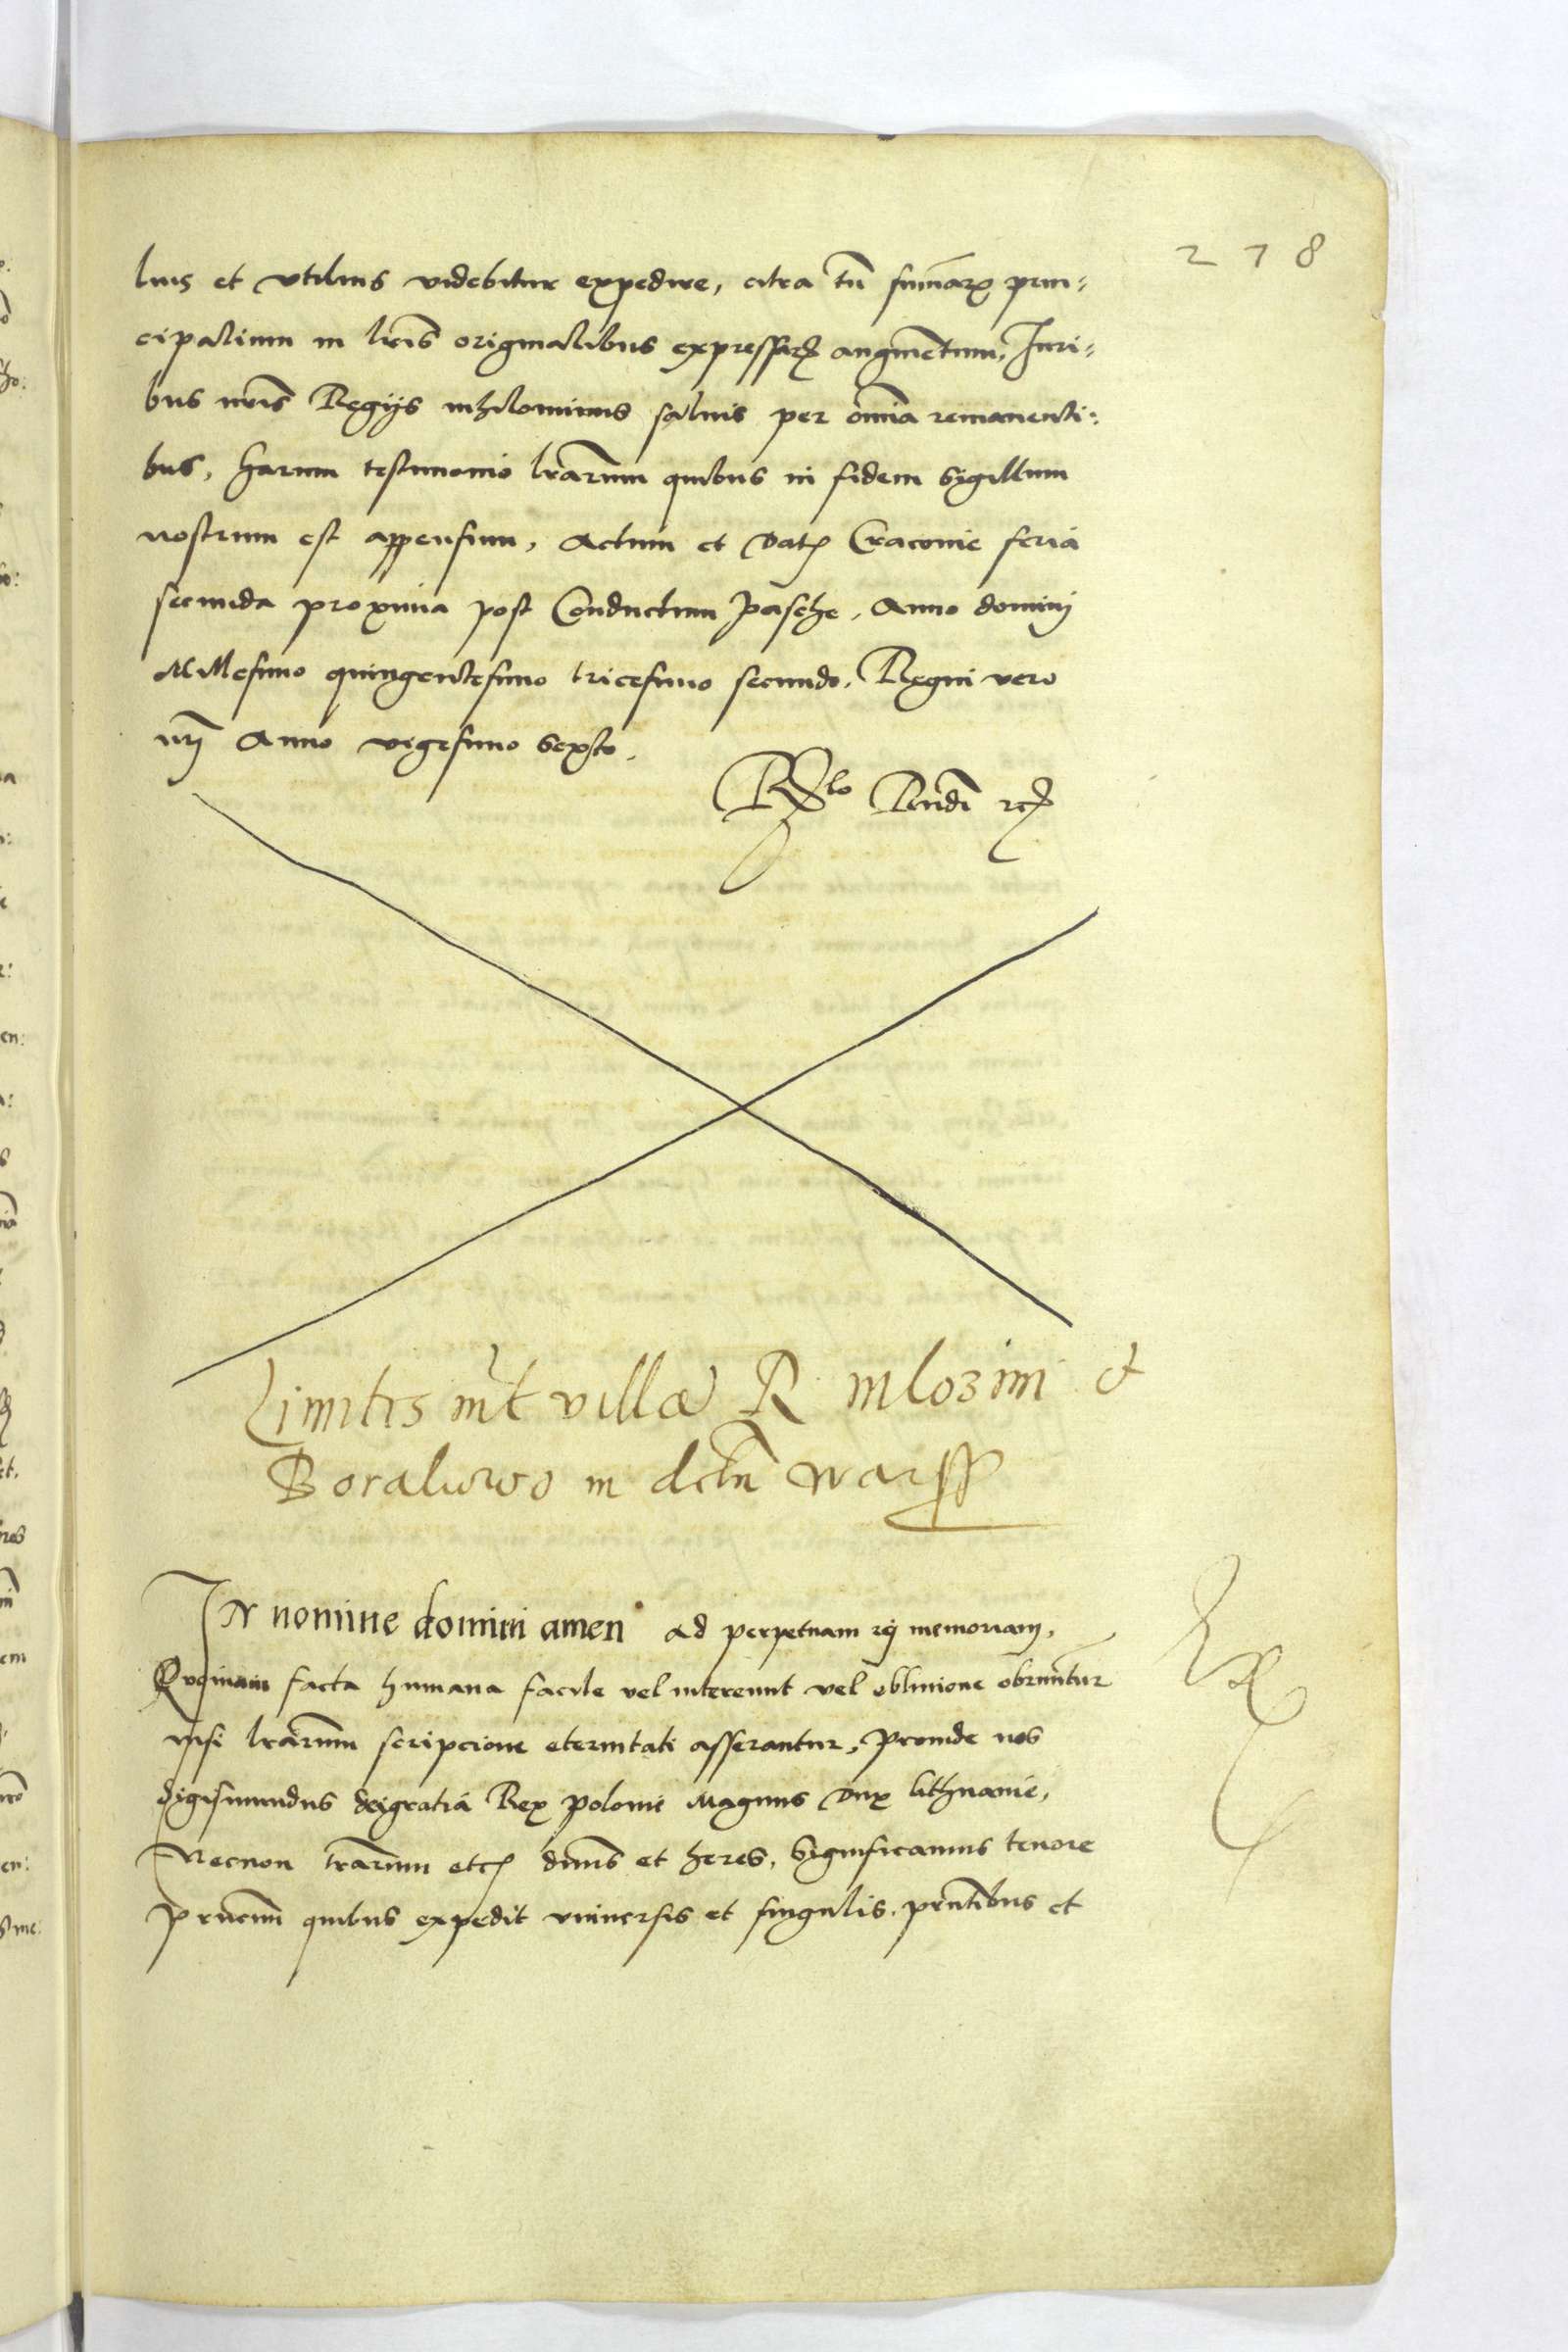 278
lius et vtilius videbitur expedire, citra tn̄ sum̄arꝝ prin:
cipalium in lr̄is originalibus expressarꝝ augmētum, Juri:
bus nr̄is Regijs nihilominus saluis per om̄ia remanenti:
bus, harum testimonio lrārum quibus in fidem Sigillum
nostrum est appensum, Actum et Datꝭ Cracouie feria
secunda proxima post Conductum Pasche, Anno domini
Millesimo quingentesimo tricesimo secundo, Regni vero
nrī Anno vigesimo Sexto.
Limites int̄ villa R Mlozini et
in dictu Warss
In nomine domini amen Ad perpetuam rei memoriam,
Quoniam facta humana facile vel intereunt vel obliuione obruūtur
nisi lrārum scripcione eternitati asserantur, Proinde nos
Sigismundus deigratia Rex Polonie Magnus Dux lithuanie,
Necnon trārum etcꝭ dn̄us et heres, Significamus tenore
prn̄cium quibus expedit vniuersis et singulis, prn̄tibus et